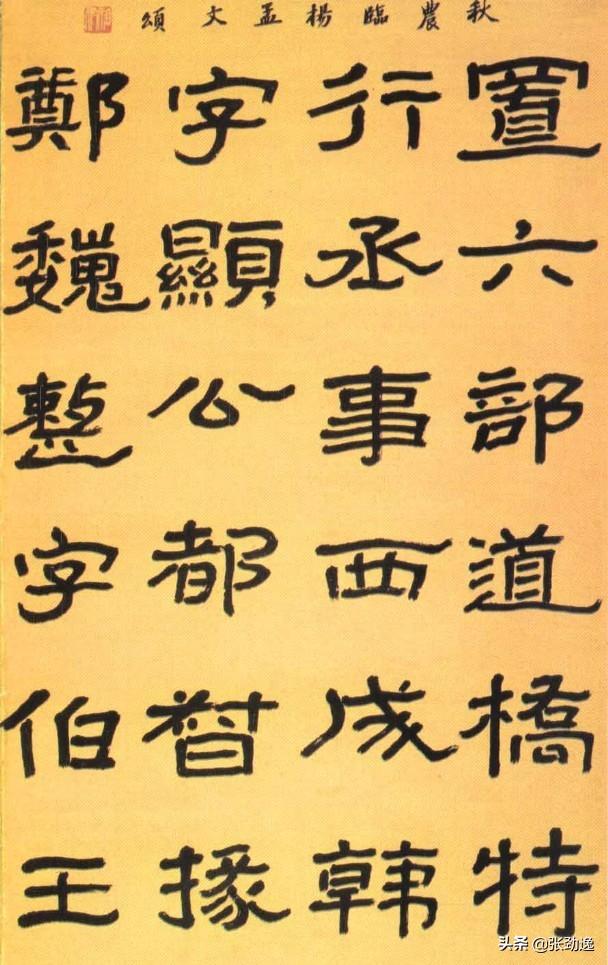 秋農臨楊孟文頌
置六部道橋特
行丞事西成韓
字顯公都督掾
鄭魏整字伯王
头条 @张劲逸